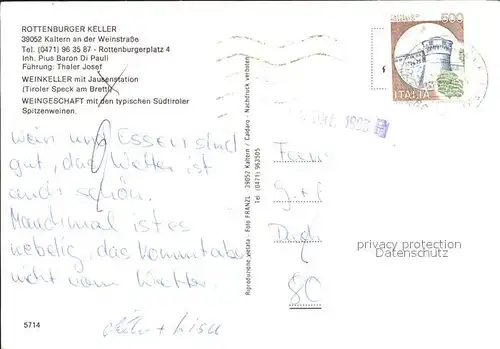 ROTTENBURGER KELLER
39052 Kaltern an der Weinstraße
Tel. (0471) 96 35 87 - Rottenburgerplatz 4
Inh. Pius Baron Di Pauli
Führung: Thaler Josef
WEINKELLER mit Jausenstation
(Tiroler Speck am Brettl)
WEINGESCHAFT mit den typischen Südtiroler
Spitzenweinen.
Wein und Essen sind
gut, das Wetter ist
auch schön.
Manchmal ist es
nebelig, das kommt aber
nicht vom Wetter.
+ Lisa
5714
Riproduzione vietata - Foto FRANZL - 39052 Kaltern / Caldaro - Nachdruck verboten
Tel. (0471) 963505
500
ITALIA
privacy protection
Datenschutz